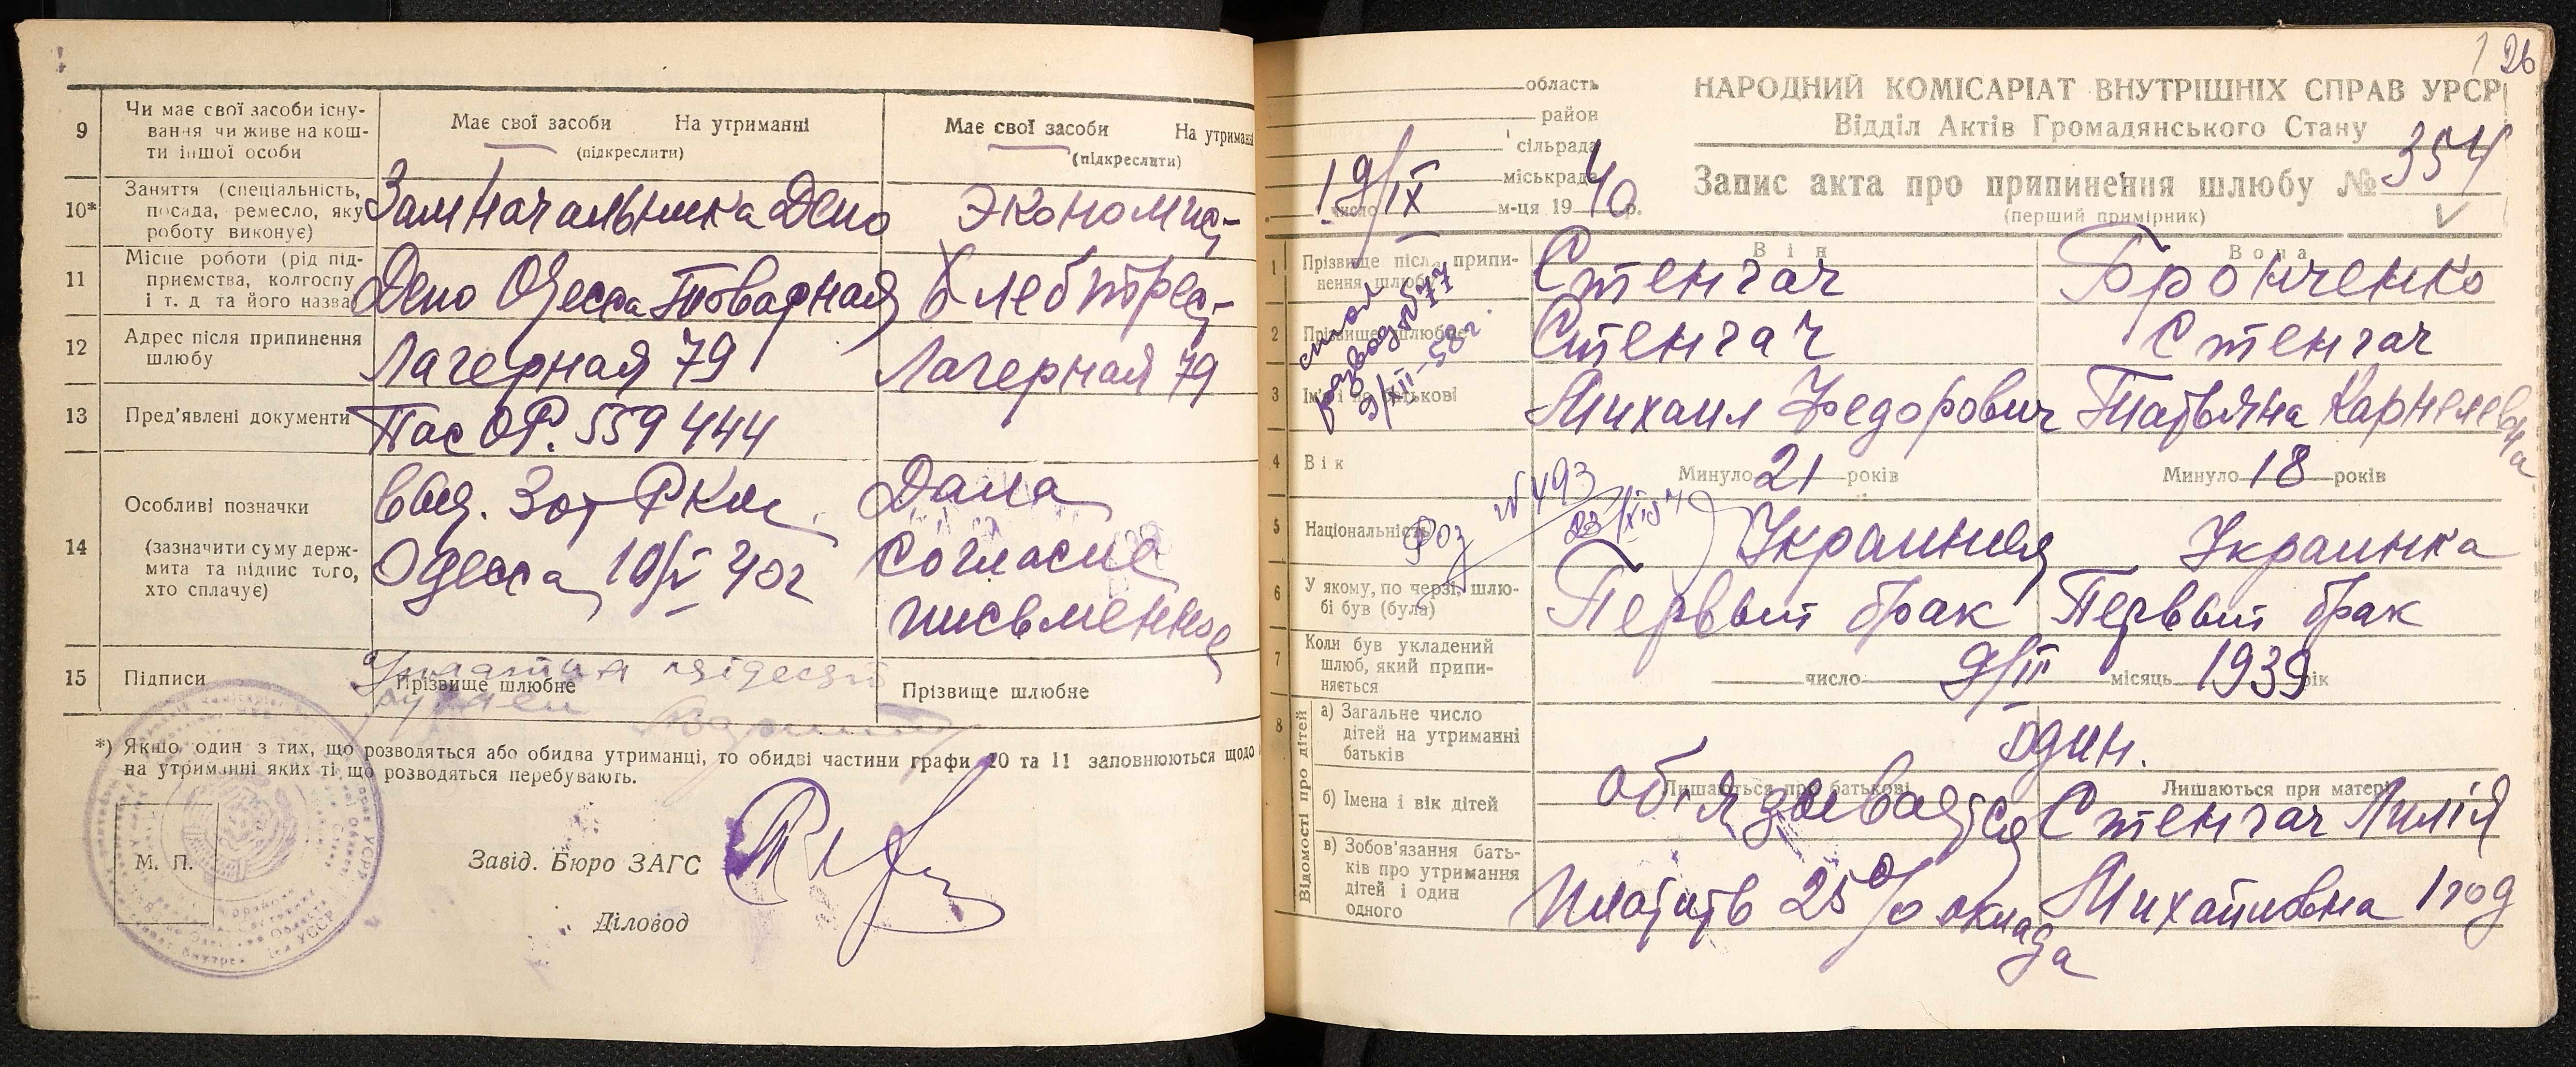 9
Чи має свої засоби існу-
вання чи живе на кош-
ти іншої особи
Має свої засоби На утриманні
(підкреслити)
Має свої засоби На утриманні
(підкреслити)
10*
Заняття (спеціальність,
посада, ремесло, яку
роботу виконує)
Зам Начальника Депо
Экономис-
11
Місце роботи (рід під-
приємства, колгоспу
і т. д. та його назва
Депо Одесса Товарная
Хлебтрес-
12
Адрес після припинення
шлюбу
Лагерная 79
Лагерная 79
13
Пред'явлені документи
Пас ОР. 559444
14
Особливі позначки
(зазначити суму держ-
мита та підпис того,
хто сплачує)
выд. 3 от РКМ
Одесса 10/V 40г
Дала
согласие
письменное
15
Підписи
Прізвище шлюбне
Прізвище шлюбне
*) Якщо один з тих, що розводяться або обидва утриманці, то обидві частини графи 10 та 11 заповнюються щодо
на утриманні яких ті що розводяться перебувають.
М. П.
Завід. Бюро ЗАГС
Діловод
26
область
район
сільрада
міськрада
19/IX 40
число м-ця 19 р.
НАРОДНИЙ КОМІСАРІАТ ВНУТРІШНІХ СПРАВ УРСР
Відділ Актів Громадянського Стану
Запис акта про припинення шлюбу № 354
(перший примірник)
Він
Вона
1
Прізвище після припи-
нення шлюбу
Стенгач
Бронченко
2
Прізвище шлюбне
Стенгач
Стенгач
3
Ім'я і по батькові
Михаил Федорович
Татьяна Карнелевна
4
Вік
Минуло 21 років
Минуло 18 років
№ 493
5
Національність
Украинец
Украинка
6
У якому, по черзі, шлю-
бі був (була)
Первый брак
Первый брак
7
Коли був укладений
шлюб, який припи-
няється
число 9/III місяць 1939 рік
8
Відомості про дітей
а) Загальне число
дітей на утриманні
батьків
один.
б) Імена і вік дітей
Лишаються при батькові
Лишаються при матері
Стенгач Лилія
Михайловна 1 год
в) Зобов'язання бать-
ків про утримання
дітей і один
одного
обязывается
платить 25% оклада